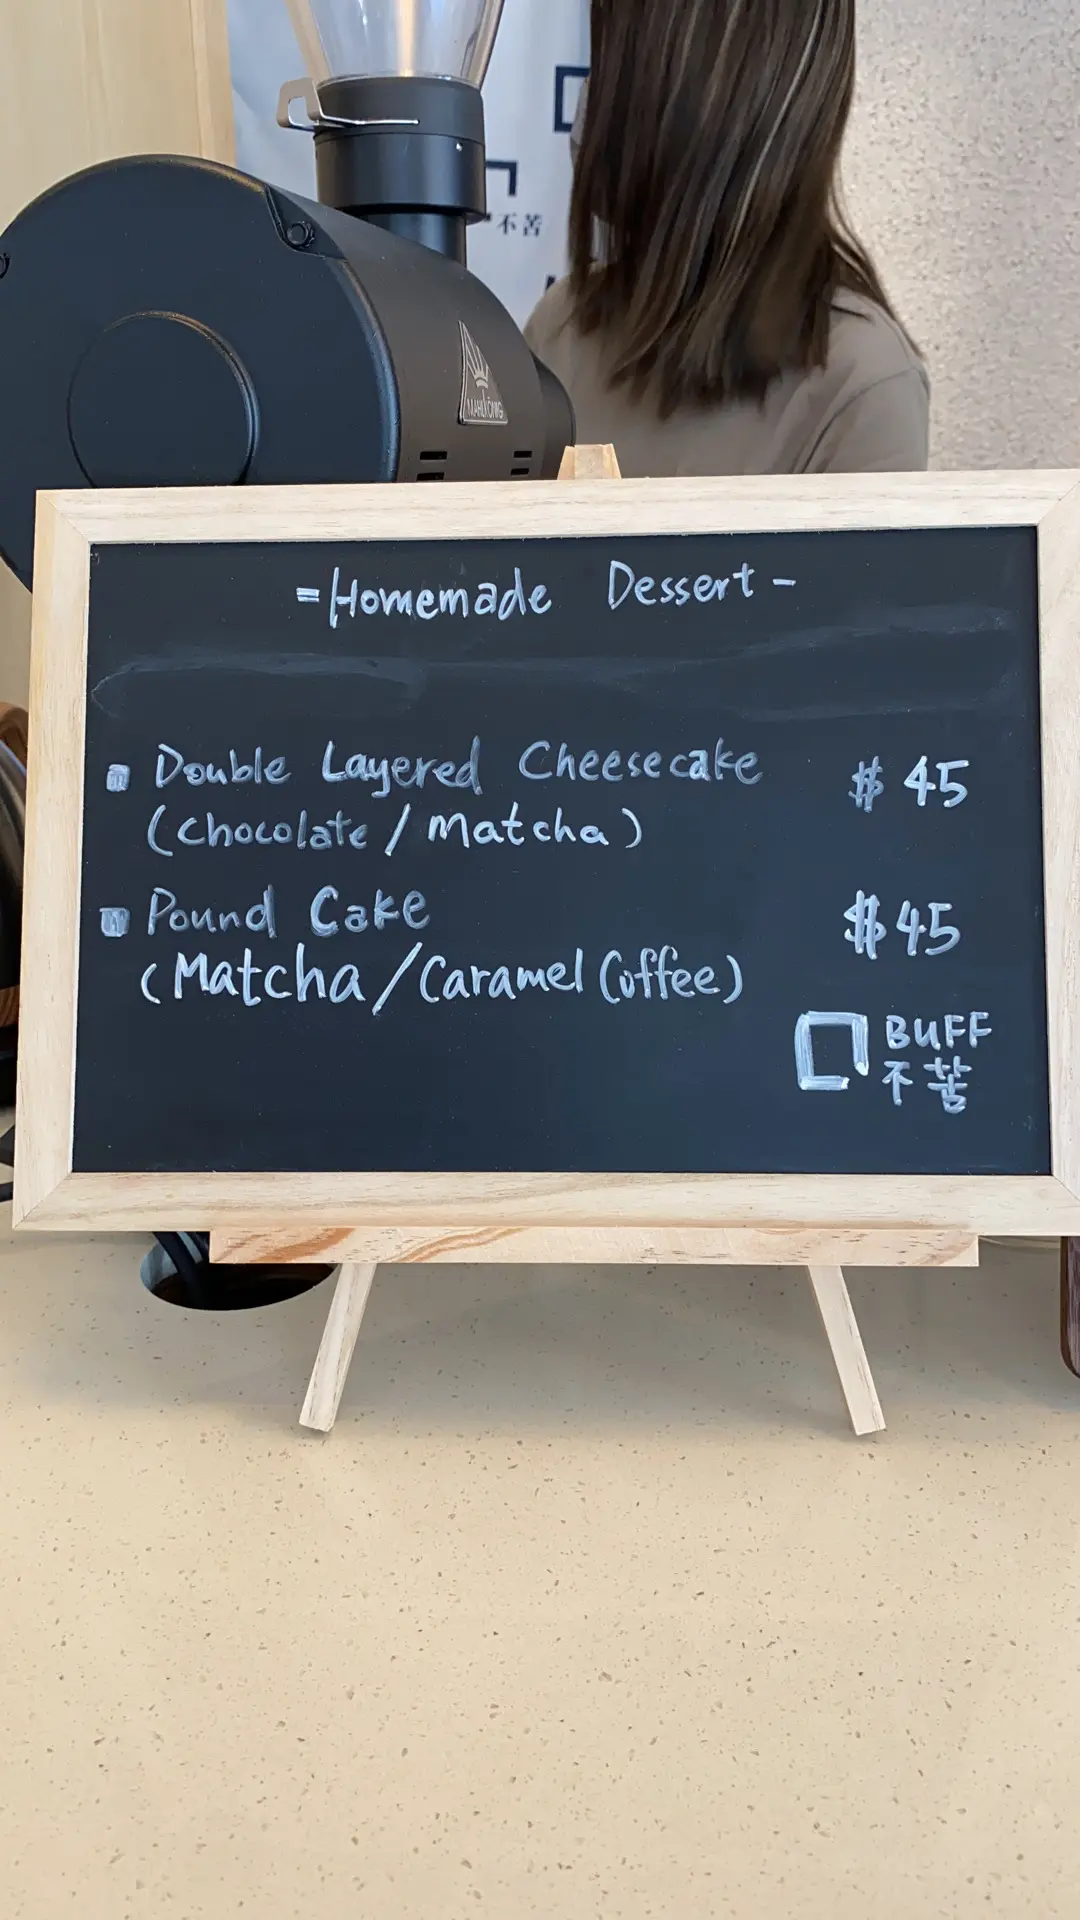 不苦
MAHLKÖNIG
=Homemade Dessert-
Double Layered Cheesecake $45
(Chocolate/Matcha)
Pound Cake $45
(Matcha/Caramel Coffee)
BUFF
不苦